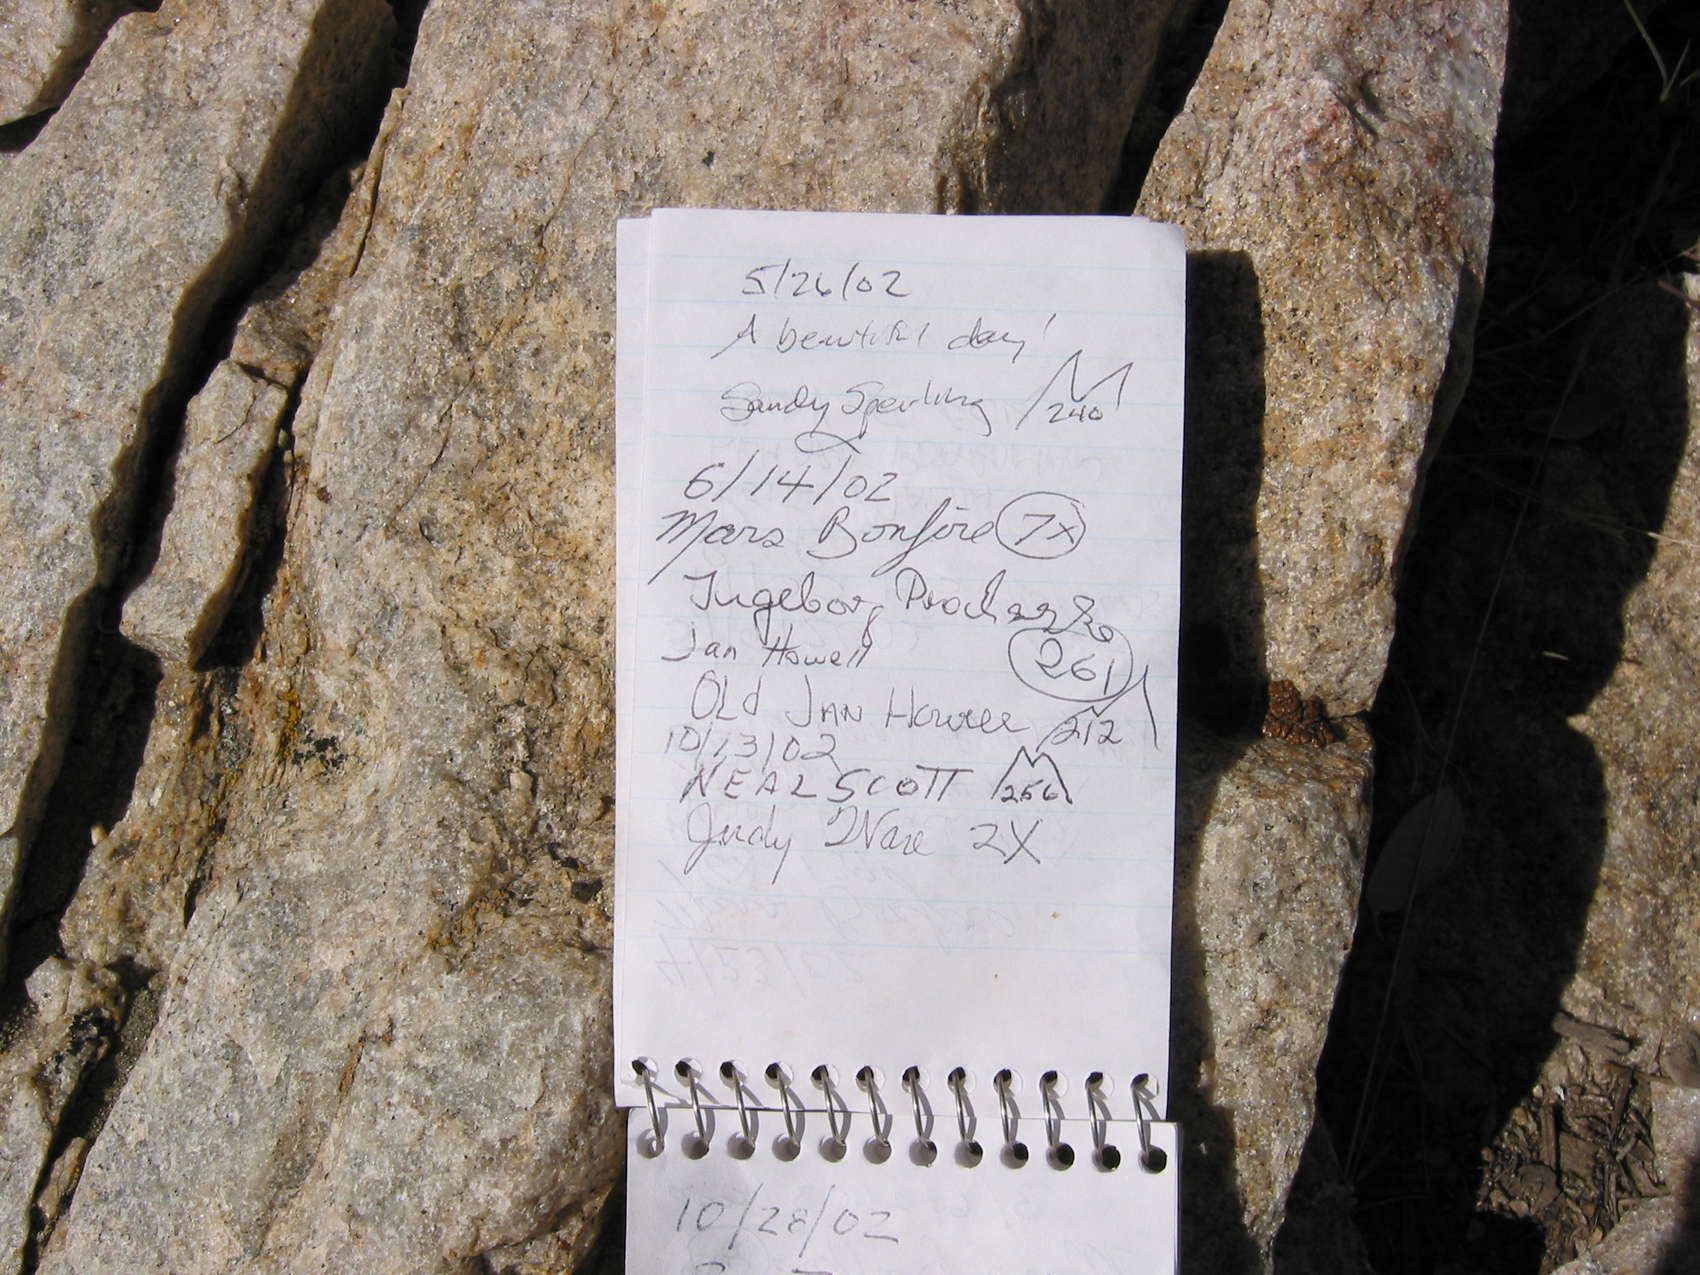 5/26/02
A beautiful day!
Sandy Sperling 240
6/14/02
Mars Bonfire 7X
Ingeborg Prochazka
Jan Howell 261
Old JAN 212
10/13/02
NEAL SCOTT 256
Judy Ware 2X
10/28/02